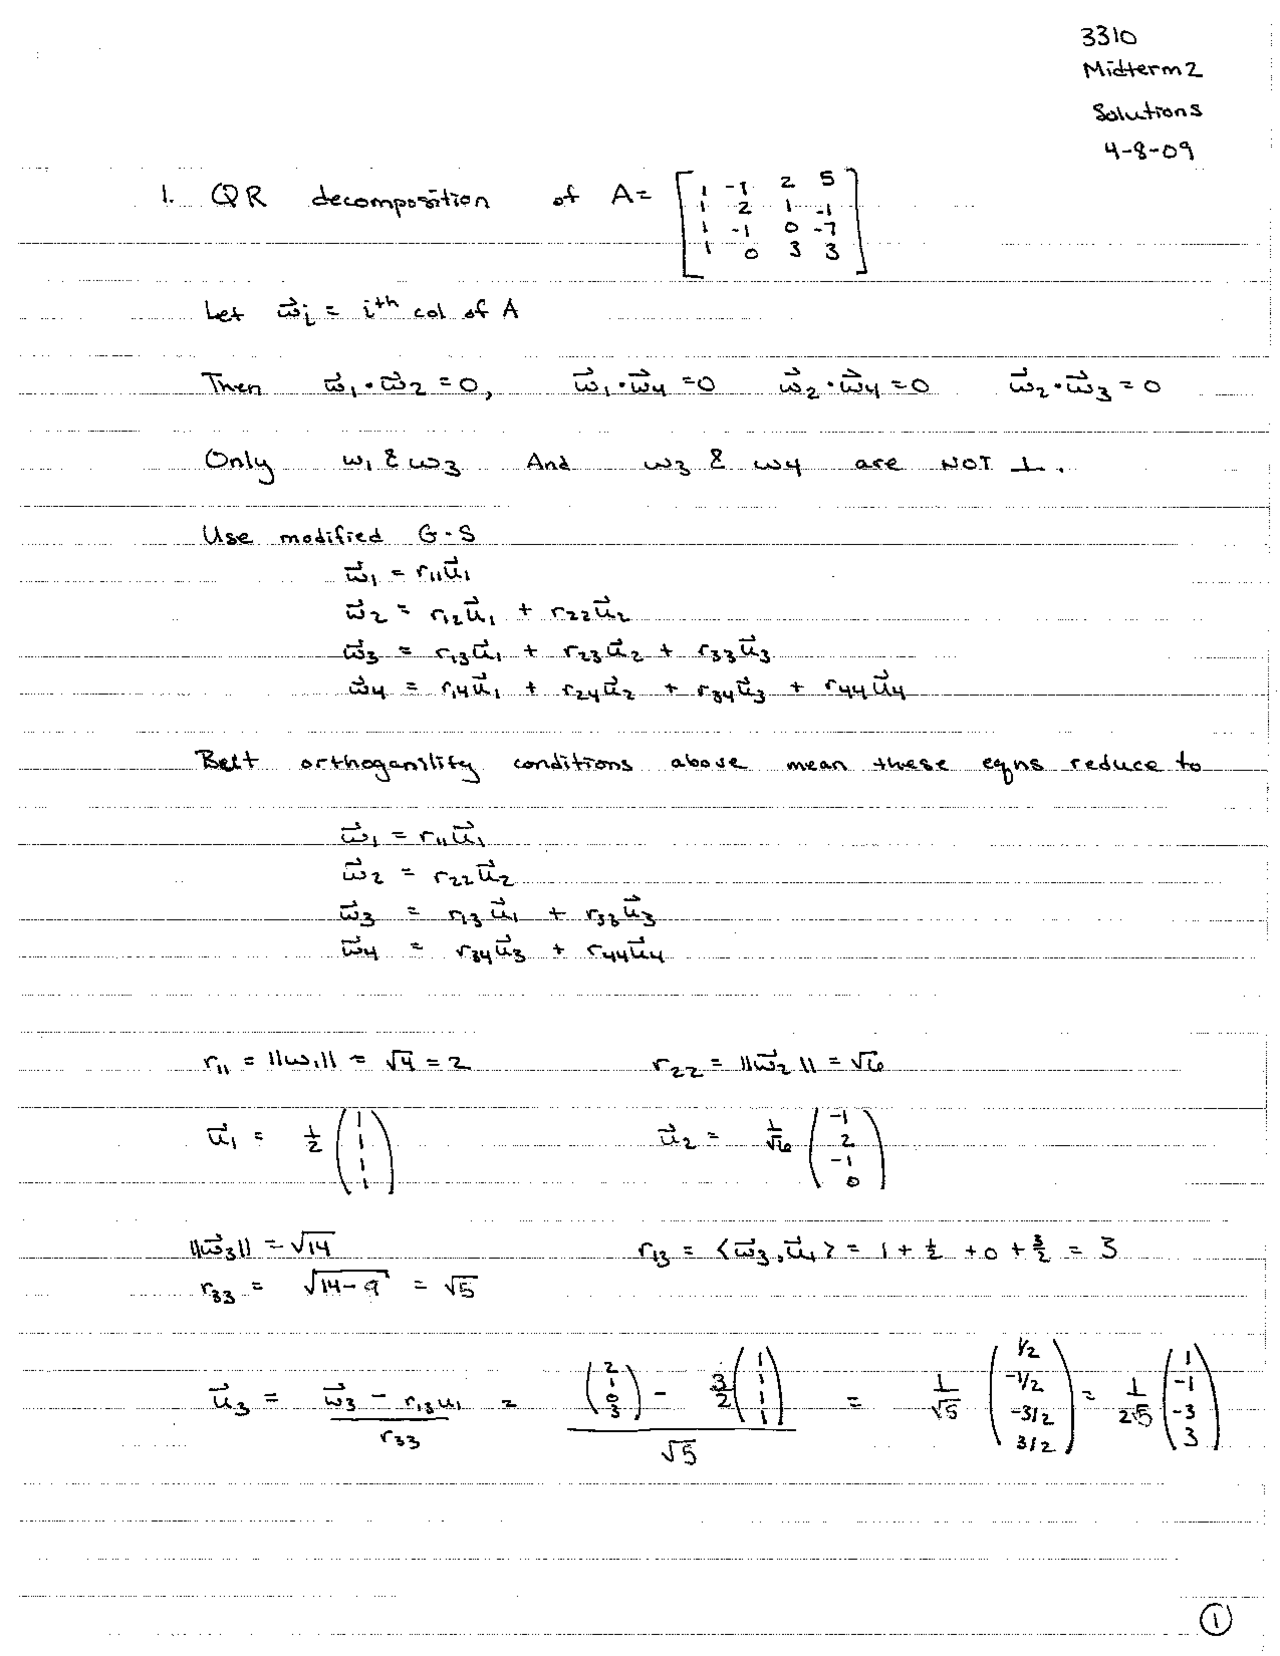 3310
Midterm 2
Solutions
4-8-09
1. QR decomposition of A= [1 -1 2 5
1 2 1 -1
1 -1 0 -7
1 0 3 3]
Let w⃗i = ith col of A
Then w⃗1·w⃗2=0, w⃗1·w⃗4=0 w⃗2·w⃗4=0 w⃗2·w⃗3=0
Only w1 & w3 And w3 & w4 are NOT ⊥.
Use modified G-S
w⃗1 = r11u⃗1
w⃗2 = r12u⃗1 + r22u⃗2
w⃗3 = r13u⃗1 + r23u⃗2 + r33u⃗3
w⃗4 = r14u⃗1 + r24u⃗2 + r34u⃗3 + r44u⃗4
But orthoganility conditions above mean these eqns reduce to
w⃗1 = r11u⃗1
w⃗2 = r22u⃗2
w⃗3 = r13u⃗1 + r33u⃗3
w⃗4 = r34u⃗3 + r44u⃗4
r11 = ||w1|| = √4 = 2 r22 = ||w⃗2|| = √6
u⃗1 = 1/2 (1 1 1 1) u⃗2 = 1/√6 (-1 2 -1 0)
||w⃗3|| = √14 r13 = <w⃗3,u⃗1> = 1 + 1/2 + 0 + 3/2 = 3
r33 = √14-9 = √5
u⃗3 = w⃗3 - r13u1 / r33 = (2 1 0 3) - 3/2 (1 1 1 1) / √5 = 1/√5 (1/2 -1/2 -3/2 3/2) = 1/2√5 (1 -1 -3 3)
1